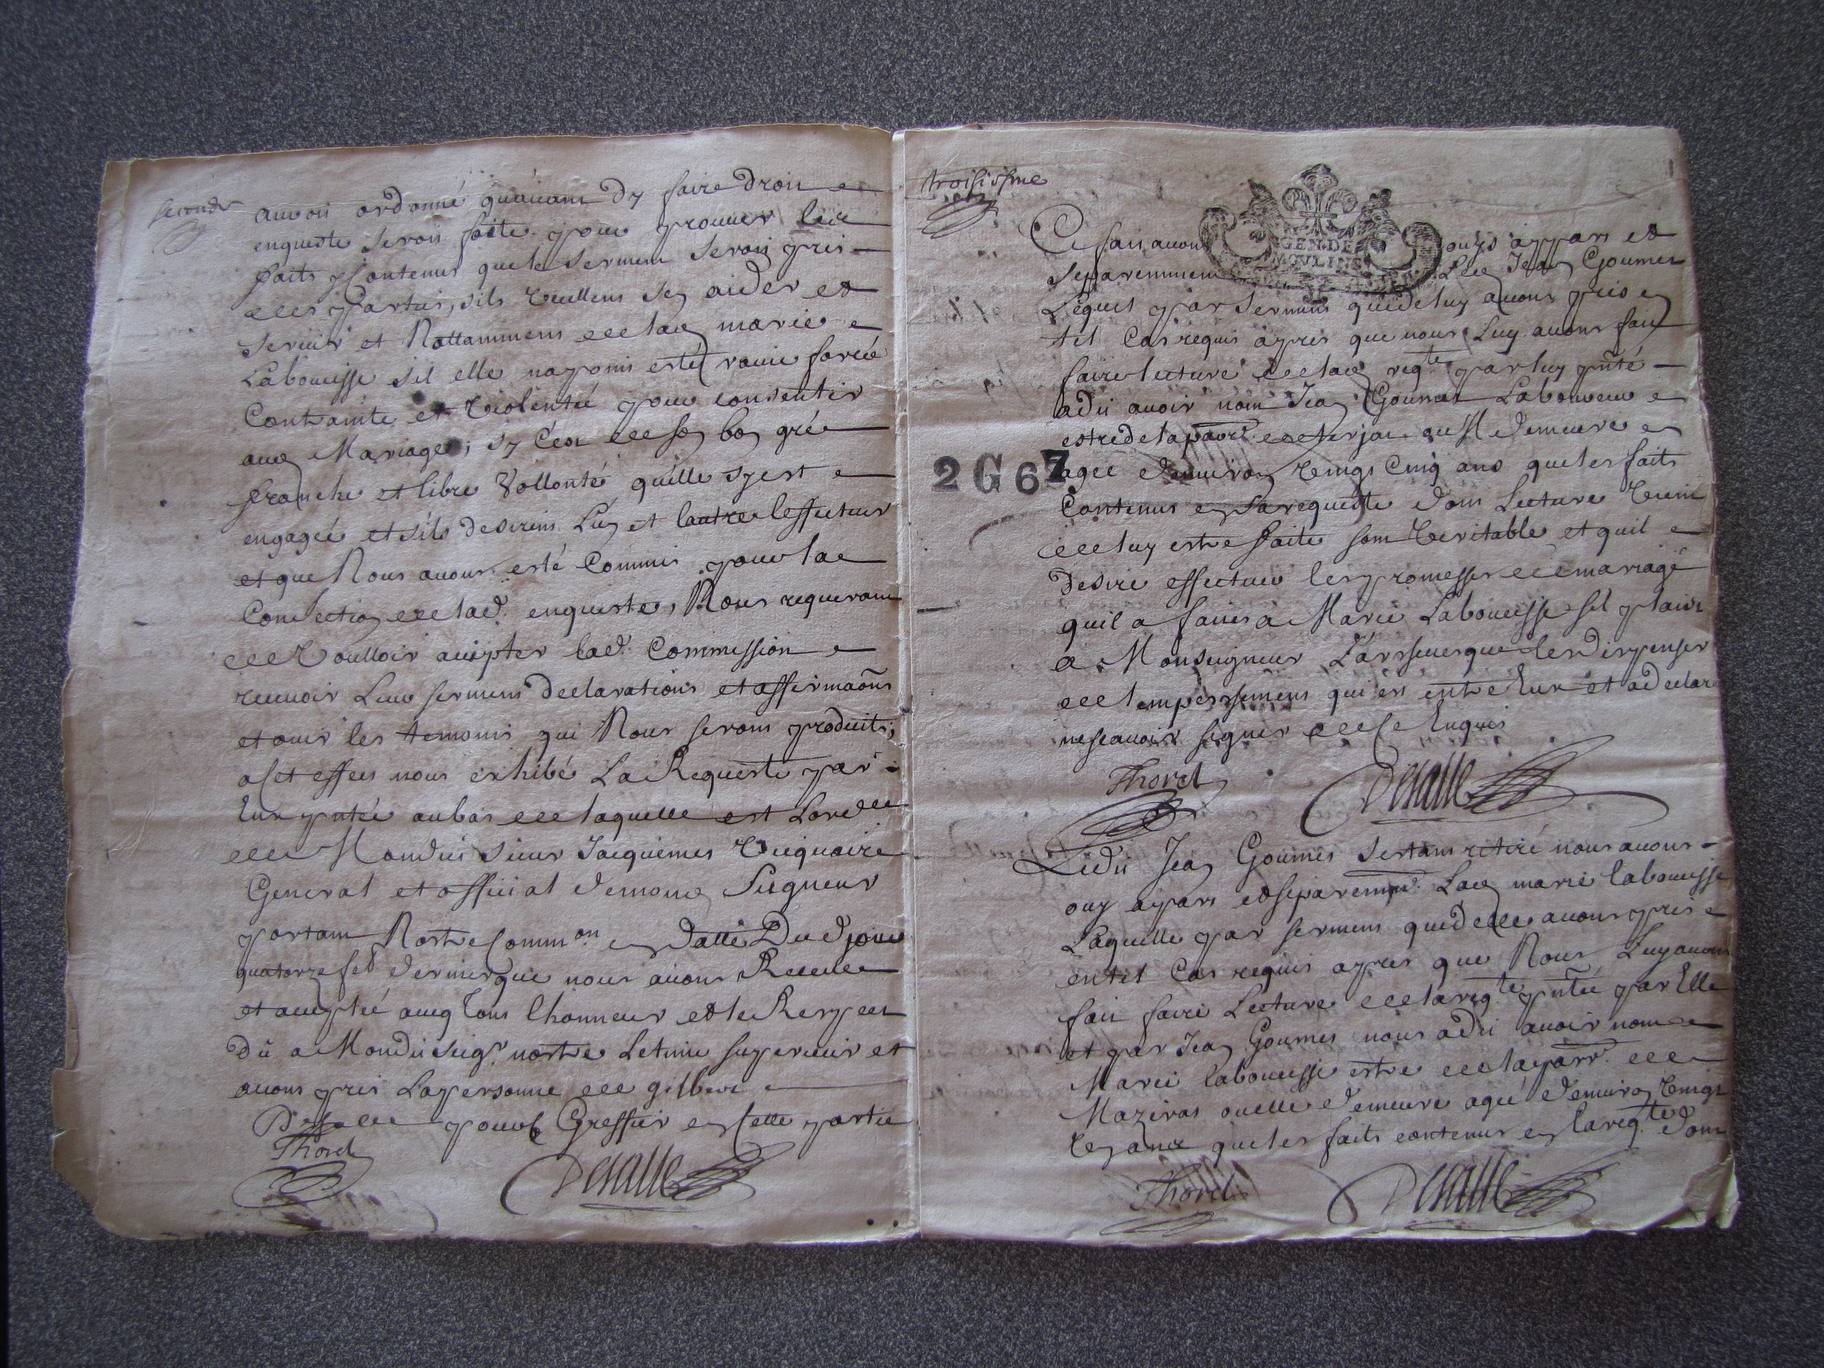 seconde
auroit ordonné quavant dy faire droit
enqueste seroit faite pour prouver les
faits contenus que le serment seroit pris
des parties, sils veullent sen aider et
servir et Nottamment de lad marie
Laboueisse sil elle na point esté ravie forcée
Contrainte et violentée pour consentir
aud Mariage, sy Cest de son bon gré
franche et libre vollonté quelle sy est
engagée et sils desirent Lun et lautre leffectuer
et que Nous avons esté Commis pour la
Confection de lad. enqueste, Nous requerant
de Voulloir accepter lad. Commission
recevoir Leur serment declarations et affirmaons
et ouir les temoins qui Nous seront produits,
a cet effect nous exhibé La Requeste par
Eux pntée au bas de laquelle est Lord
de Mondit sieur Jacquemet Vicquaire
General et official de mond Seigneur
portant Nostre Common en datte Du jour
quatorze feb dernier que nous avons Receue
et accepté avecq tous lhonneur et le Respect
dû a Mondit seigr nostre superieur et
avons pris La personne de gilbert
Desalle pour Greffier en Cette partie
Thorel
Desalle
troisisme
GEN. DE
MOULINS
Ce fait avons ouys a part et
separemment Led Jean Goumet
Lequel par serment que de luy avons pris en
tel Cas requis apres que nous Luy avons fait
faire lecture de lad reqte par luy pnté
a dit avoir nom Jean Goumet Laboureur
estre de la parr. de ou Il demeure
agée denviron Vingt Cinq ans que les faits
Contenus en sa requeste dont Lecture Vient
de luy estre faite sont Veritable et quil
desire effectuer les promesses de mariage
quil a faites a Marie Laboueisse sil plaist
a Monseigneur Larsseuesque les dispenser
de lempessement qui est entre Eux et a declaré
ne scavoir signer de Ce Enquis
Thorel
Desalle
Ledit Jean Goumet sestant retiré nous avons
ouy a part et separemmt Lad marie laboueisse
Laquelle par serment que delle avons pris
en tel Cas requis apres que Nous Luy avons
fait faire Lecture de la reqte pntée par Elle
et par Jean Goumet nous a dit avoir nom
Marie laboueisse estre de la parr. de
Maziras ou elle demeure agée denviron Vingt
que les faits contenus en la reqte dont
Thorel
Desalle
2 G 67